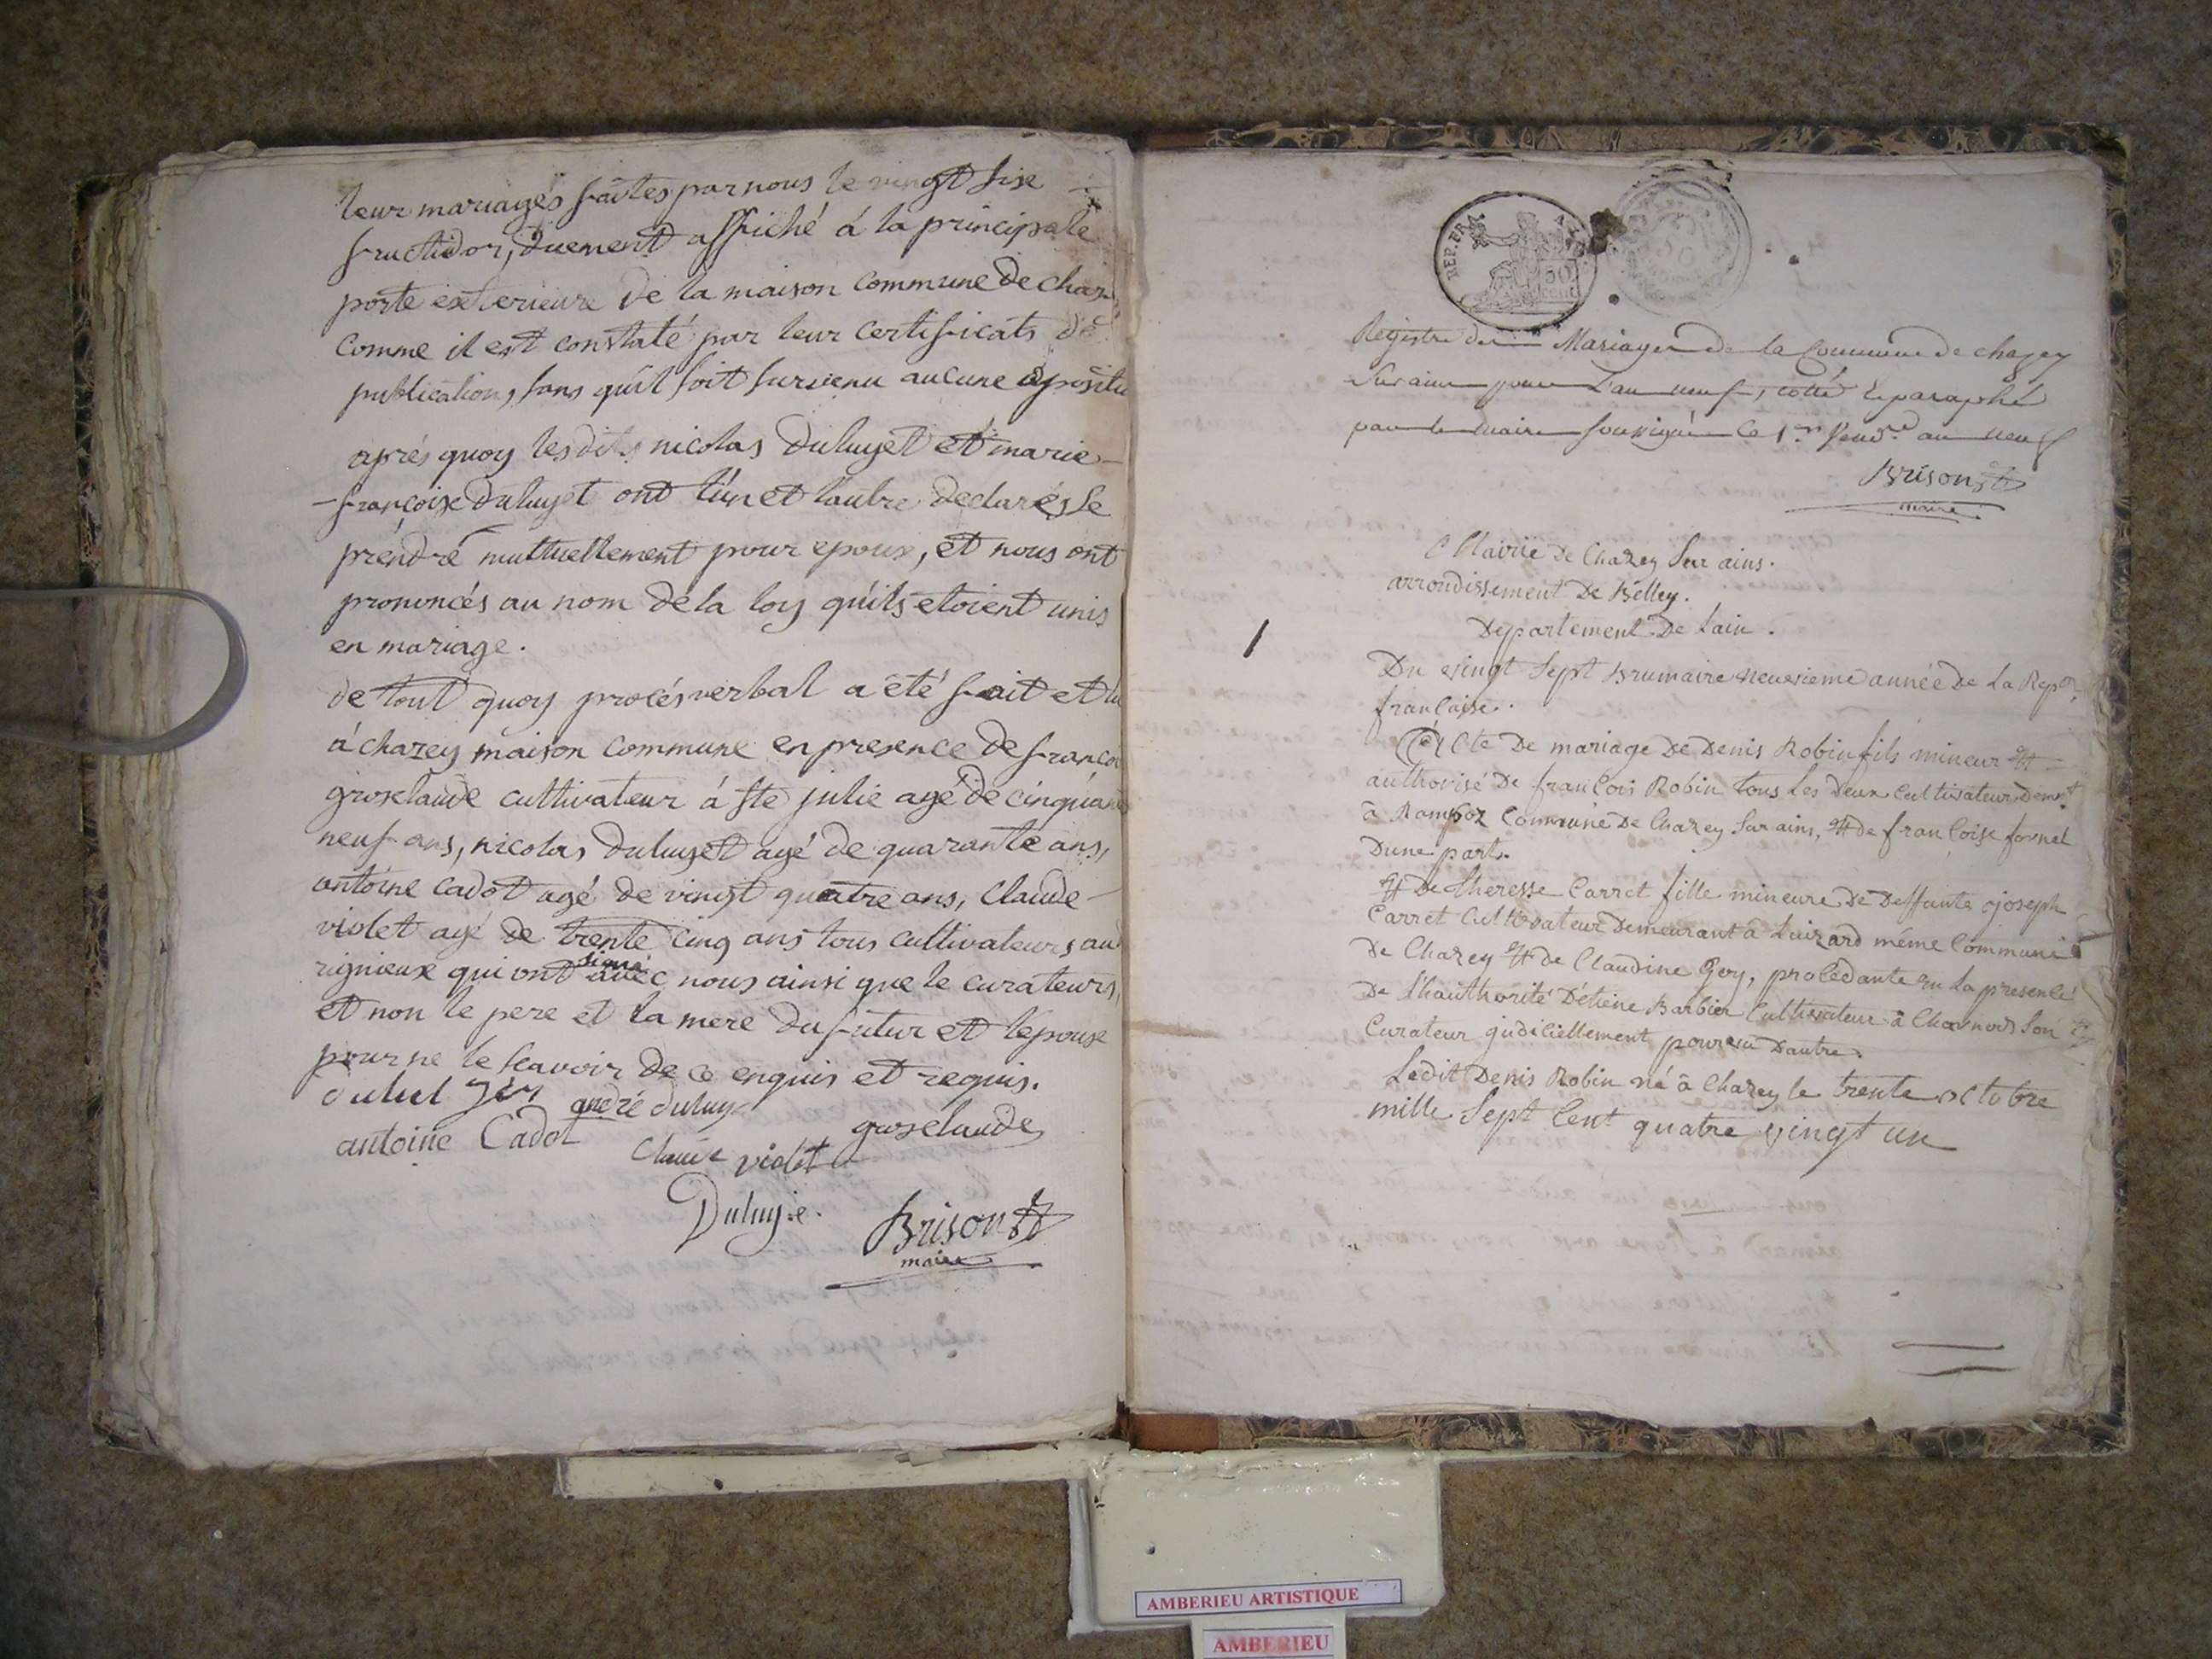 leur mariages faites par nous le vingt sise
fructidor, duement affiché á la principale
porte exterieure de la maison commune de chaz
comme il est constaté par leur certificats de
publication, sans qu'il soit survenu aucune oposition
aprés quoy les dits nicolas Duluyet et marie
francoise Duluyet ont l'un et l'autre declarés se
prendre mutuellement pour epoux, et nous ont
prononcés au nom de la loy qu'ils etoient unis
en mariage.
de tout quoy procés verbal a été fait et lu
á chazey maison commune en presence de francoi
groselaude cultivateur á ste julie agé de cinquante
neuf ans, nicolas duluyet agé de quarante ans,
antoine cadot agé de vingt quatre ans, Claude
violet agé de trente cinq ans tous cultivateurs au
rignieux qui ont signé avec nous ainsi que le curateurs,
et non le pere et la mere du futur et l'epouse
pour ne le scavoir de ce enquis et requis.
andré duluy
antoine Cadot
groselaude
Claude violet
Duluye.
Brison
maire
REP. FRA.
50
Registre des Mariages de la Commune de chazey
Sur ain pour L'an neuf, cotté & paraphé
par le maire soussigné ce 1er Vend.re an neuf
Brison
maire
Mairie de Chazey Sur ains.
arrondissement De Belley.
Departement De Lain.
1
Du vingt Sept Brumaire neuvieme année De La Repq.
francaise.
Acte De mariage De Denis Robin fils mineur &
authorisé De francois Robin tous Les Deux Cultivateur Demt
â Rampoz Commune De Chazey Sur ains, & de francoise fornet
Dune part.
& De theresse Carret fille mineure De Deffunts joseph
Carret Cultivateur Demeurant â Luizard même Commune
De Chazey & de Claudine Goy, procédante En La presente
De Lhauthorité D'étiene Barbier Cultivateur â Charnod Son
Curateur judiciellement pourvu D'autre.
Ledit Denis Robin né â Chazey le trente octobre
mille Sept Cent quatre vingt un
AMBERIEU ARTISTIQUE
AMBERIEU